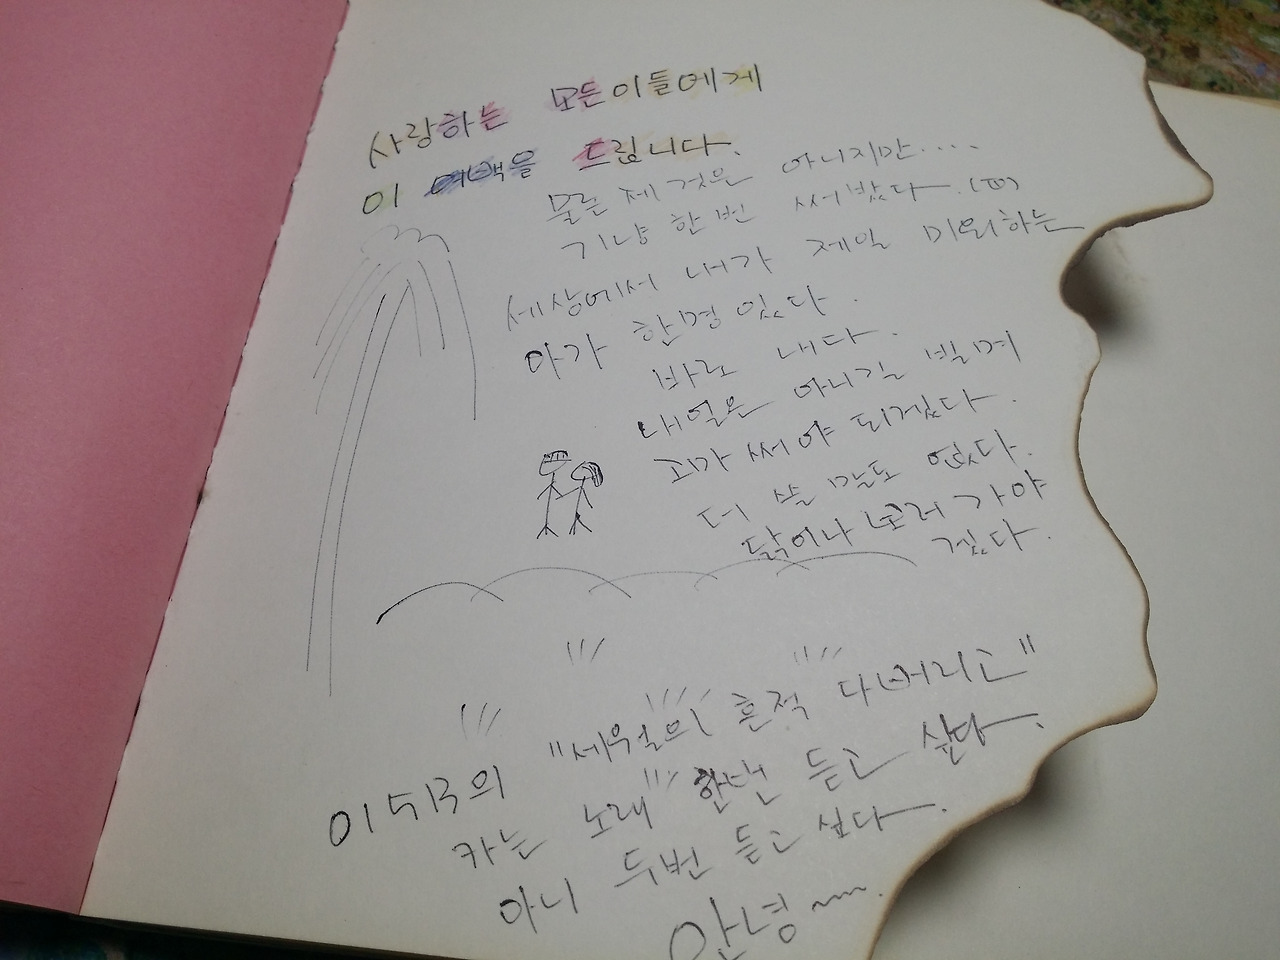 사랑하는 모든이들에게
이 여백을 드립니다.
물론 제 것은 아니지만....
기냥 한번 써봤다.
세상에서 내가 제일 미워하는
아가 한명 있다.
바로 내다.
내일은 아니길 빌며
고가 써야 되겠다.
더 쓸 말도 없다.
닭이나 보러 가야
겠다.
"세월의 흔적 다버리고"
카는 노래 한번 듣고 싶다.
아니 두번 듣고 싶다.
안녕~